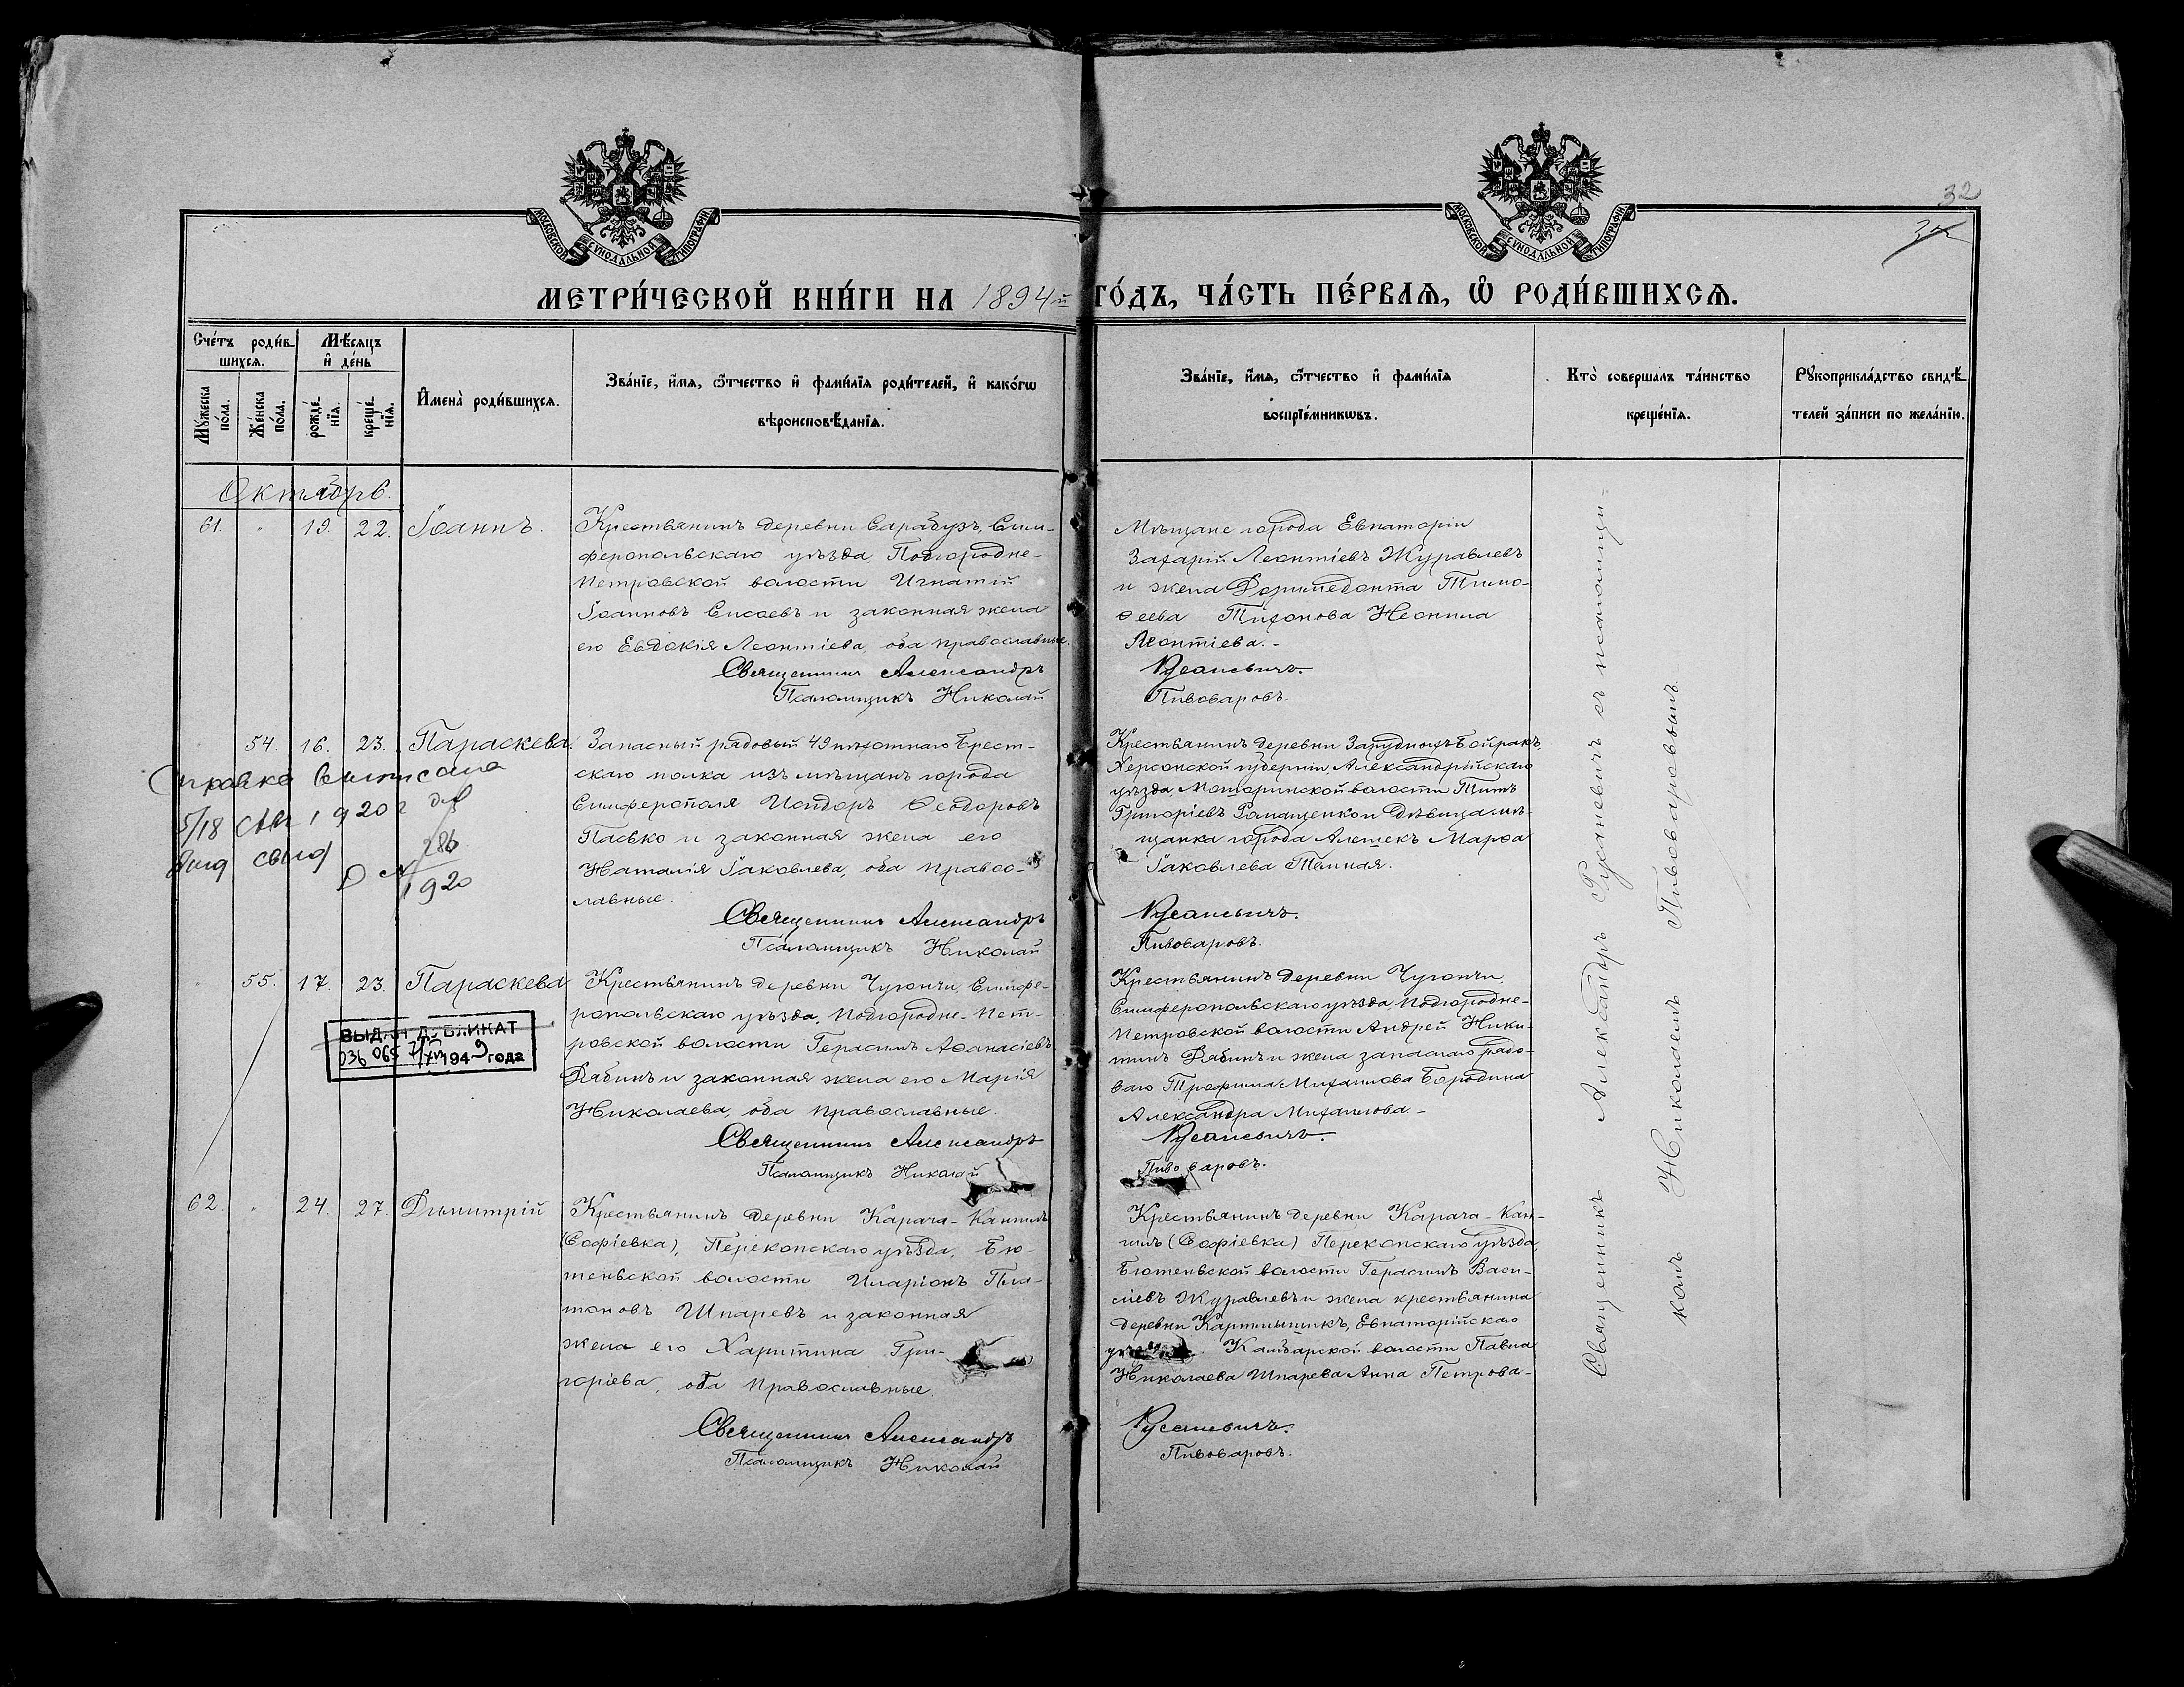 32
МОСКОВСКОЙ СУНОДАЛЬНОЙ ТИПОГРАФІИ
МОСКОВСКОЙ СУНОДАЛЬНОЙ ТИПОГРАФІИ
МЕТРИ́ЧЕСКОЙ КНИ́ГИ НА 1894й ГО́ДЪ, ЧА́СТЬ ПЕ́РВАЯ, Ѡ РОДИ́ВШИХСЯ.
Сче́тъ роди́в-
шихся.
Мѣ́сяцъ
и҆ де́нь
Мꙋ́жеска
по́ла.
Же́нска
по́ла.
рожде́-
нїя.
креще́-
нїя.
И҆мена̀ роди́вшихся.
Зва́нїе, и҆́мя, ѻ҆́тчество и҆ фами́лїя роди́телей, и҆ како́гѡ
вѣроисповѣ́данїя.
Зва́нїе, и҆́мя, ѻ҆́тчество и҆ фами́лїя
воспрїе́мникѡвъ.
Кто̀ соверша́лъ та́инство
креще́нїя.
Рꙋкоприкла́дство свидѣ́-
телей за́писи по жела́нїю.
Октябрь.
61. " 19. 22. Іоаннъ.
Крестьянинъ деревни Сарабузъ, Сим-
феропольскаго уѣзда, Подгородне-
Петровской волости Игнатій
Іоанновъ Елисеевъ и законная жена
его Евдокія Леонтіева, оба православные.
Священникъ Александръ
Псаломщикъ Николай
Мѣщане города Евпаторіи
Захарій Леонтіевъ Журавлевъ
и жена Доримедонта Тимо-
ѳеева Тихонова Неонила
Леонтіева.-
Русаневичъ.
Пивоваровъ.
54. 16. 23. Параскева.
Запасный рядовый 49 пѣхотнаго Брест-
скаго полка изъ мѣщанъ города
Симферополя Исидоръ Ѳеодоровъ
Пасько и законная жена его
Наталія Іаковлева, оба правос-
лавные.
Священникъ Александръ
Псаломщикъ Николай
Крестьянинъ деревни Зарудныхъ Бойракъ,
Херсонской губерніи, Александрійскаго
уѣзда, Моторинской волости Титъ
Григоріевъ Ромащенко и Дѣвица мѣ-
щанка города Алешекъ Марѳа
Іаковлева Темная.
Русаневичъ.
Пивоваровъ.
Справка выписана
5/18 1920 г
286
1920
55. 17. 23. Параскева
ВЫДАН ДУБЛИКАТ
1949 года
Крестьянинъ деревни Чугончи, Симфе-
ропольскаго уѣзда, Подгородне-Пет-
ровской волости Герасимъ Аѳанасіевъ
Рябинъ и законная жена его Марія
Николаева, оба православные.
Священникъ Александръ
Псаломщикъ Николай
Крестьянинъ деревни Чугончи,
Симферопольскаго уѣзда, Подгородне-
Петровской волости Андрей Ники-
тинъ Рябинъ и жена запаснаго рядо-
ваго Трофима Михаилова Бородина
Александра Михаилова.-
Русаневичъ.
Пивоваровъ.
62. " 24. 27. Димитрій
Крестьянинъ деревни Карача-Кангилъ
(Софіевка), Перекопскаго уѣзда, Бю-
теньской волости Иларіонъ Пла-
тоновъ Шпаревъ и законная
жена его Харитина Гри-
горіева, оба православные.
Священникъ Александръ
Псаломщикъ Николай
Крестьянинъ деревни Карача-Кан-
гилъ (Софіевка) Перекопскаго уѣзда,
Бютеньской волости Герасимъ Васи-
ліевъ Журавлевъ и жена крестьянина
деревни Картмышикъ, Евпаторійскаго
Камбарской волости Павла
Николаева Шпарева Анна Петрова-
Русаневичъ.
Пивоваровъ.
Священникъ Александръ Русаневичъ съ псаломщи-
комъ Николаемъ Пивоваровымъ.